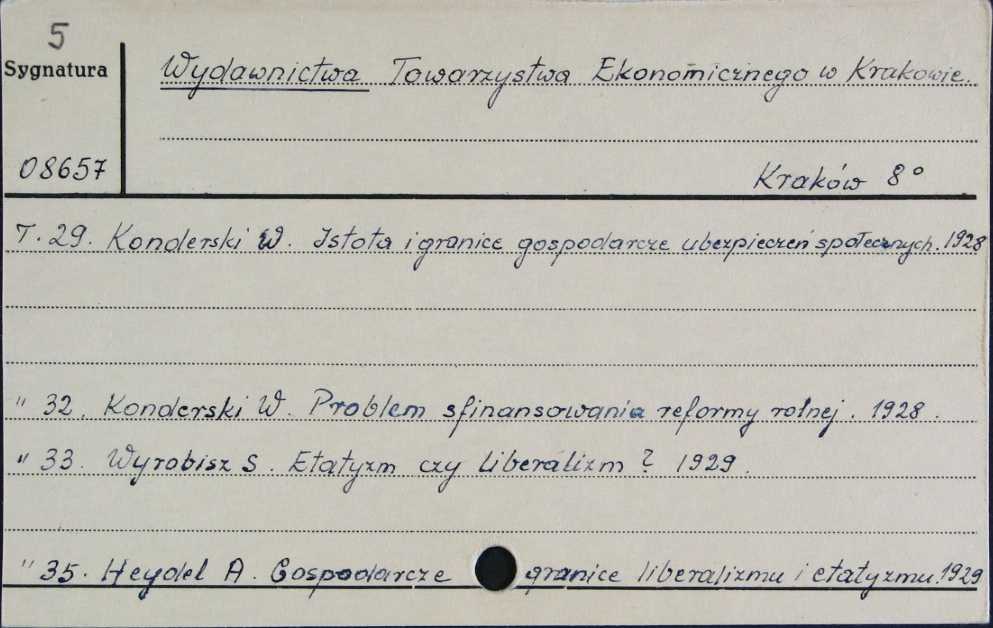 5
Sygnatura
Wydawnictwa Towarzystwa Ekonomicznego w Krakowie.
08657
Kraków 8°
T. 29. Konderski W. Istota i granice gospodarcze ubezpieczeń społecznych. 1928
" 32. Konderski W. Problem sfinansowania reformy rolnej. 1928.
" 33. Wyrobisz S. Etatyzm czy liberalizm? 1929.
" 35. Heydel A. Gospodarcze granice liberalizmu i etatyzmu. 1929